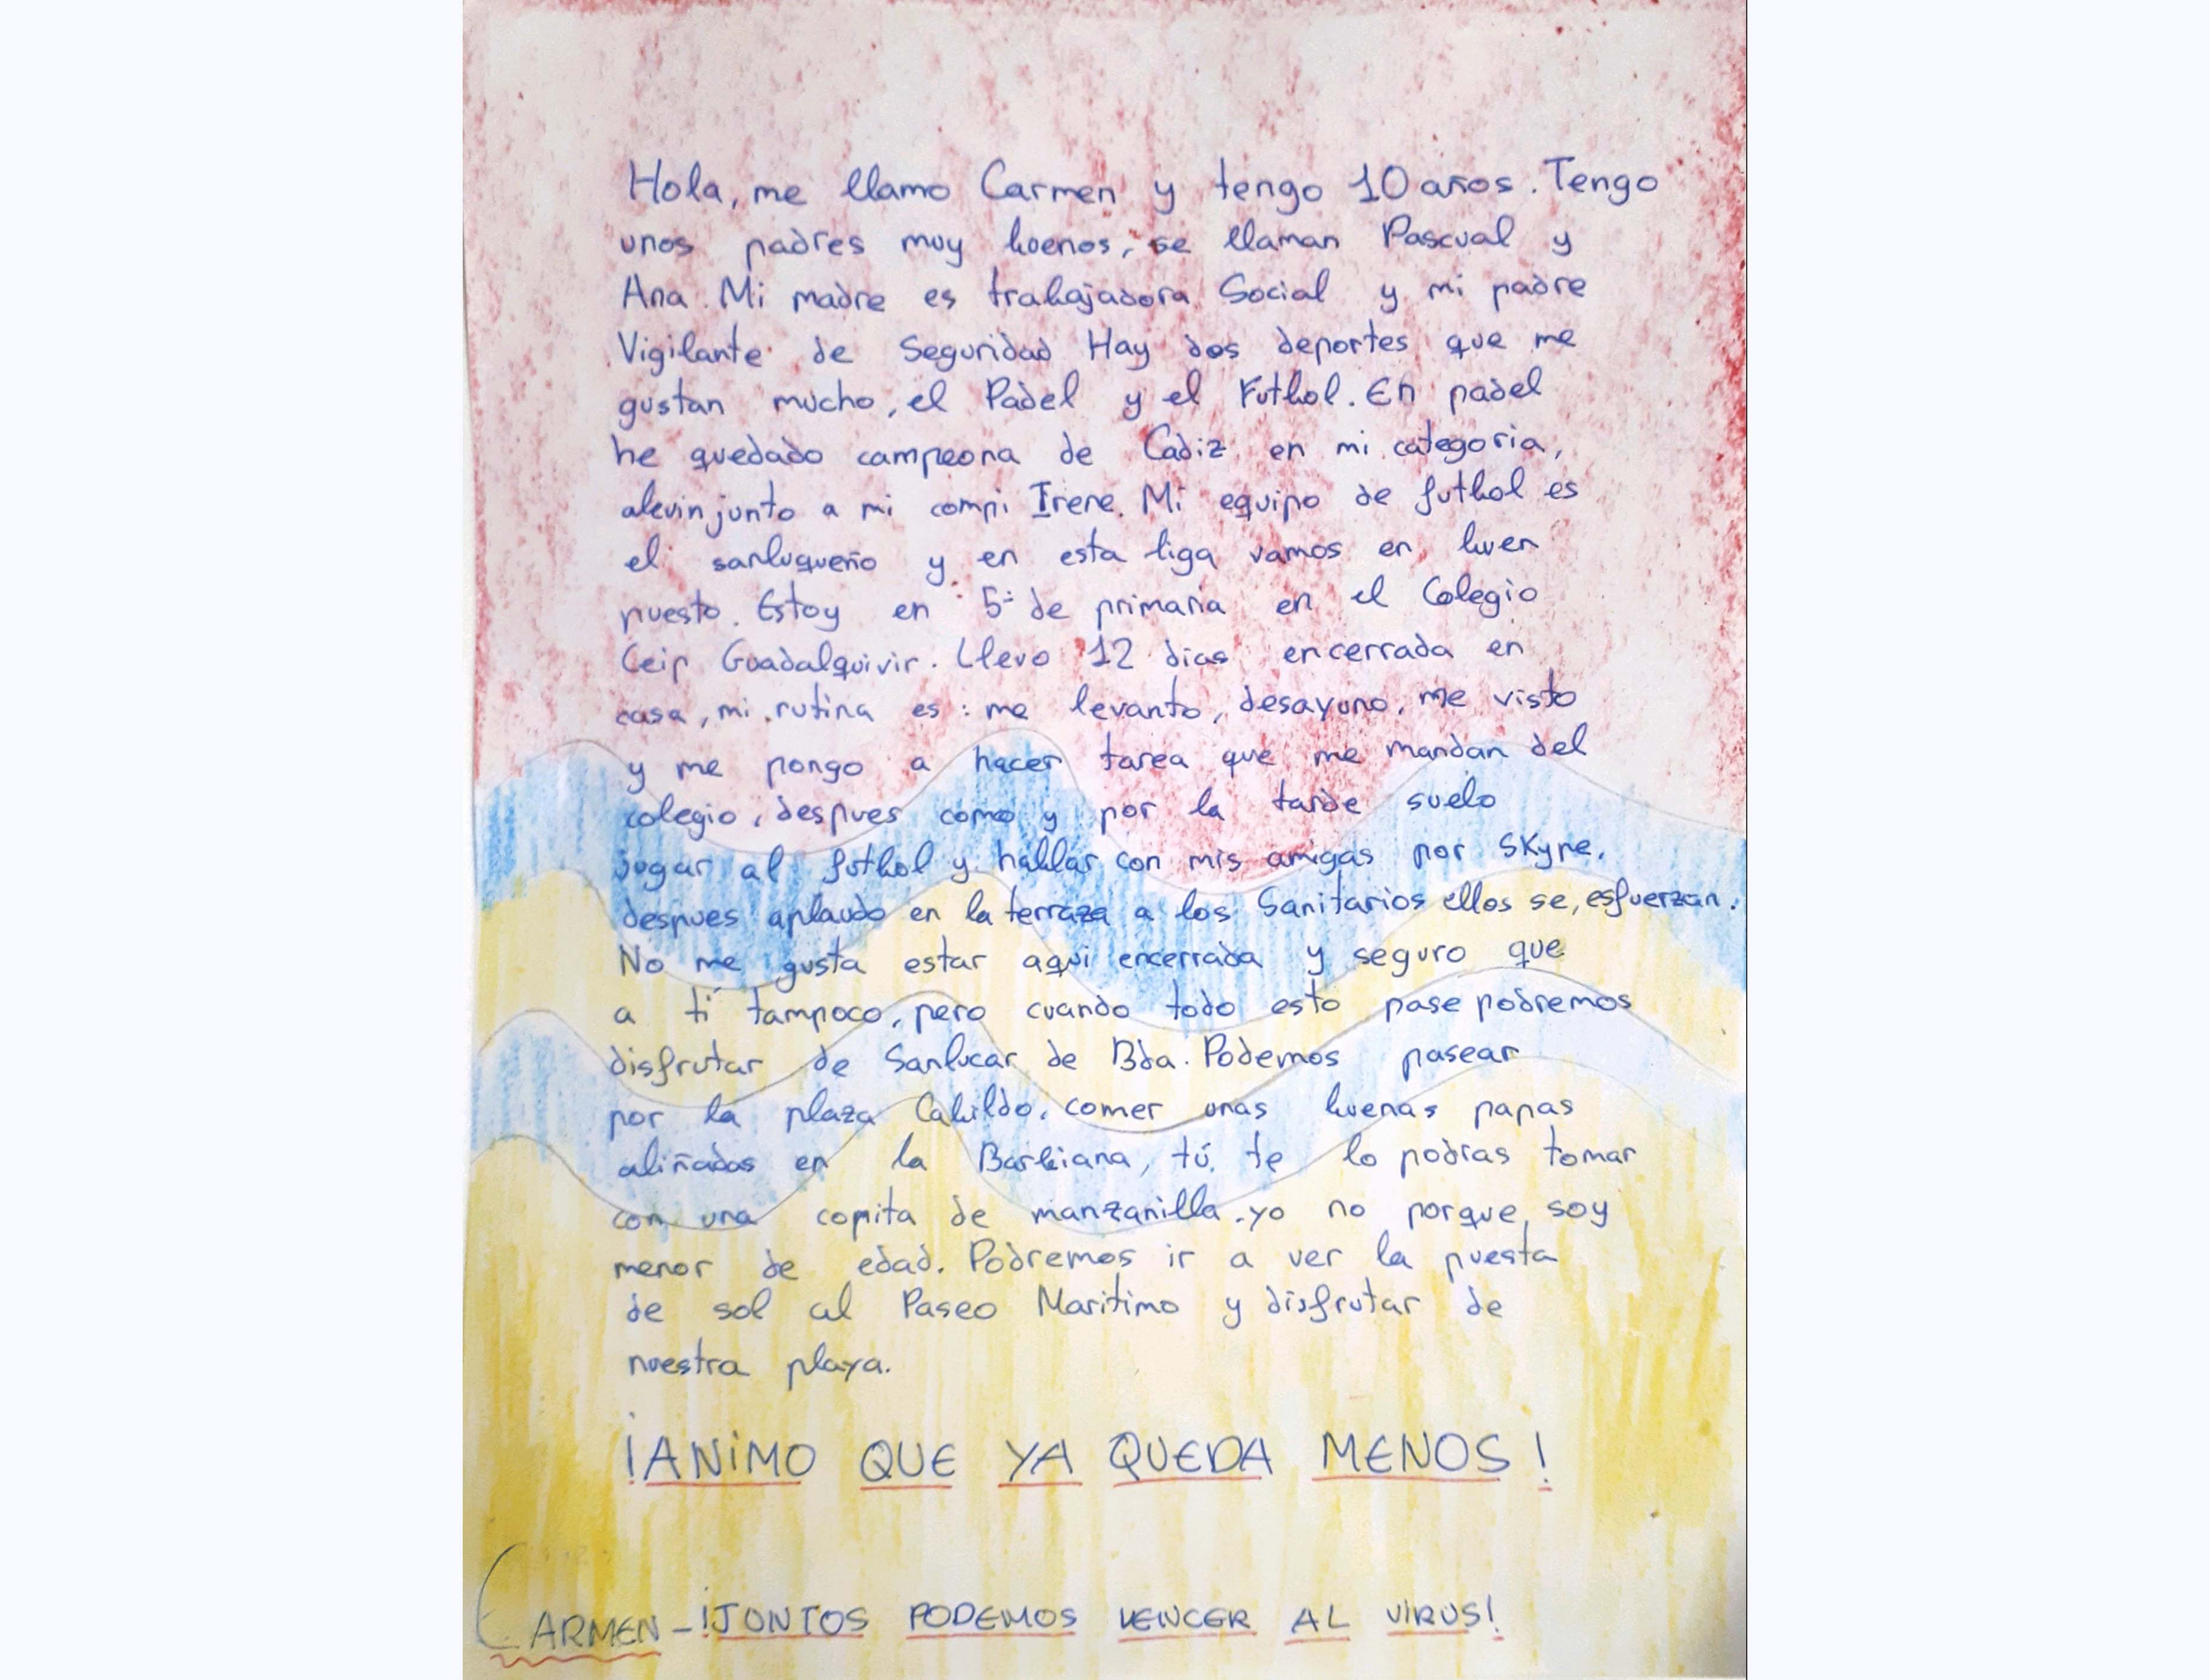 Hola, me llamo Carmen y tengo 10 años. Tengo
unos padres muy buenos, se llaman Pascual y
Ana. Mi madre es trabajadora Social y mi padre
Vigilante de Seguridad Hay dos deportes que me
gustan mucho, el Padel y el Futbol. En padel
he quedado campeona de Cadiz en mi categoria,
alevin junto a mi compi Irene. Mi equipo de futbol es
el sanluqueño y en esta liga vamos en buen
puesto. Estoy en 5º de primaria en el Colegio
Ceip Guadalquivir. Llevo 12 dias encerrada en
casa, mi rutina es: me levanto, desayuno, me visto
y me pongo a hacer tarea que me mandan del
colegio, despues como y por la tarde suelo
jugar al futbol y hablar con mis amigas por Skype,
despues aplaudo en la terraza a los Sanitarios ellos se, esfuerzan.
No me gusta estar aqui encerrada y seguro que
a tí tampoco, pero cuando todo esto pase podremos
disfrutar de Sanlucar de Bda. Podemos pasear
por la plaza Cabildo, comer unas buenas papas
aliñadas en la Barbiana, tú te lo podras tomar
con una copita de manzanilla, yo no porque soy
menor de edad. Podremos ir a ver la puesta
de sol al Paseo Maritimo y disfrutar de
nuestra playa.
¡ANIMO QUE YA QUEDA MENOS!
CARMEN - ¡JUNTOS PODEMOS VENCER AL VIRUS!